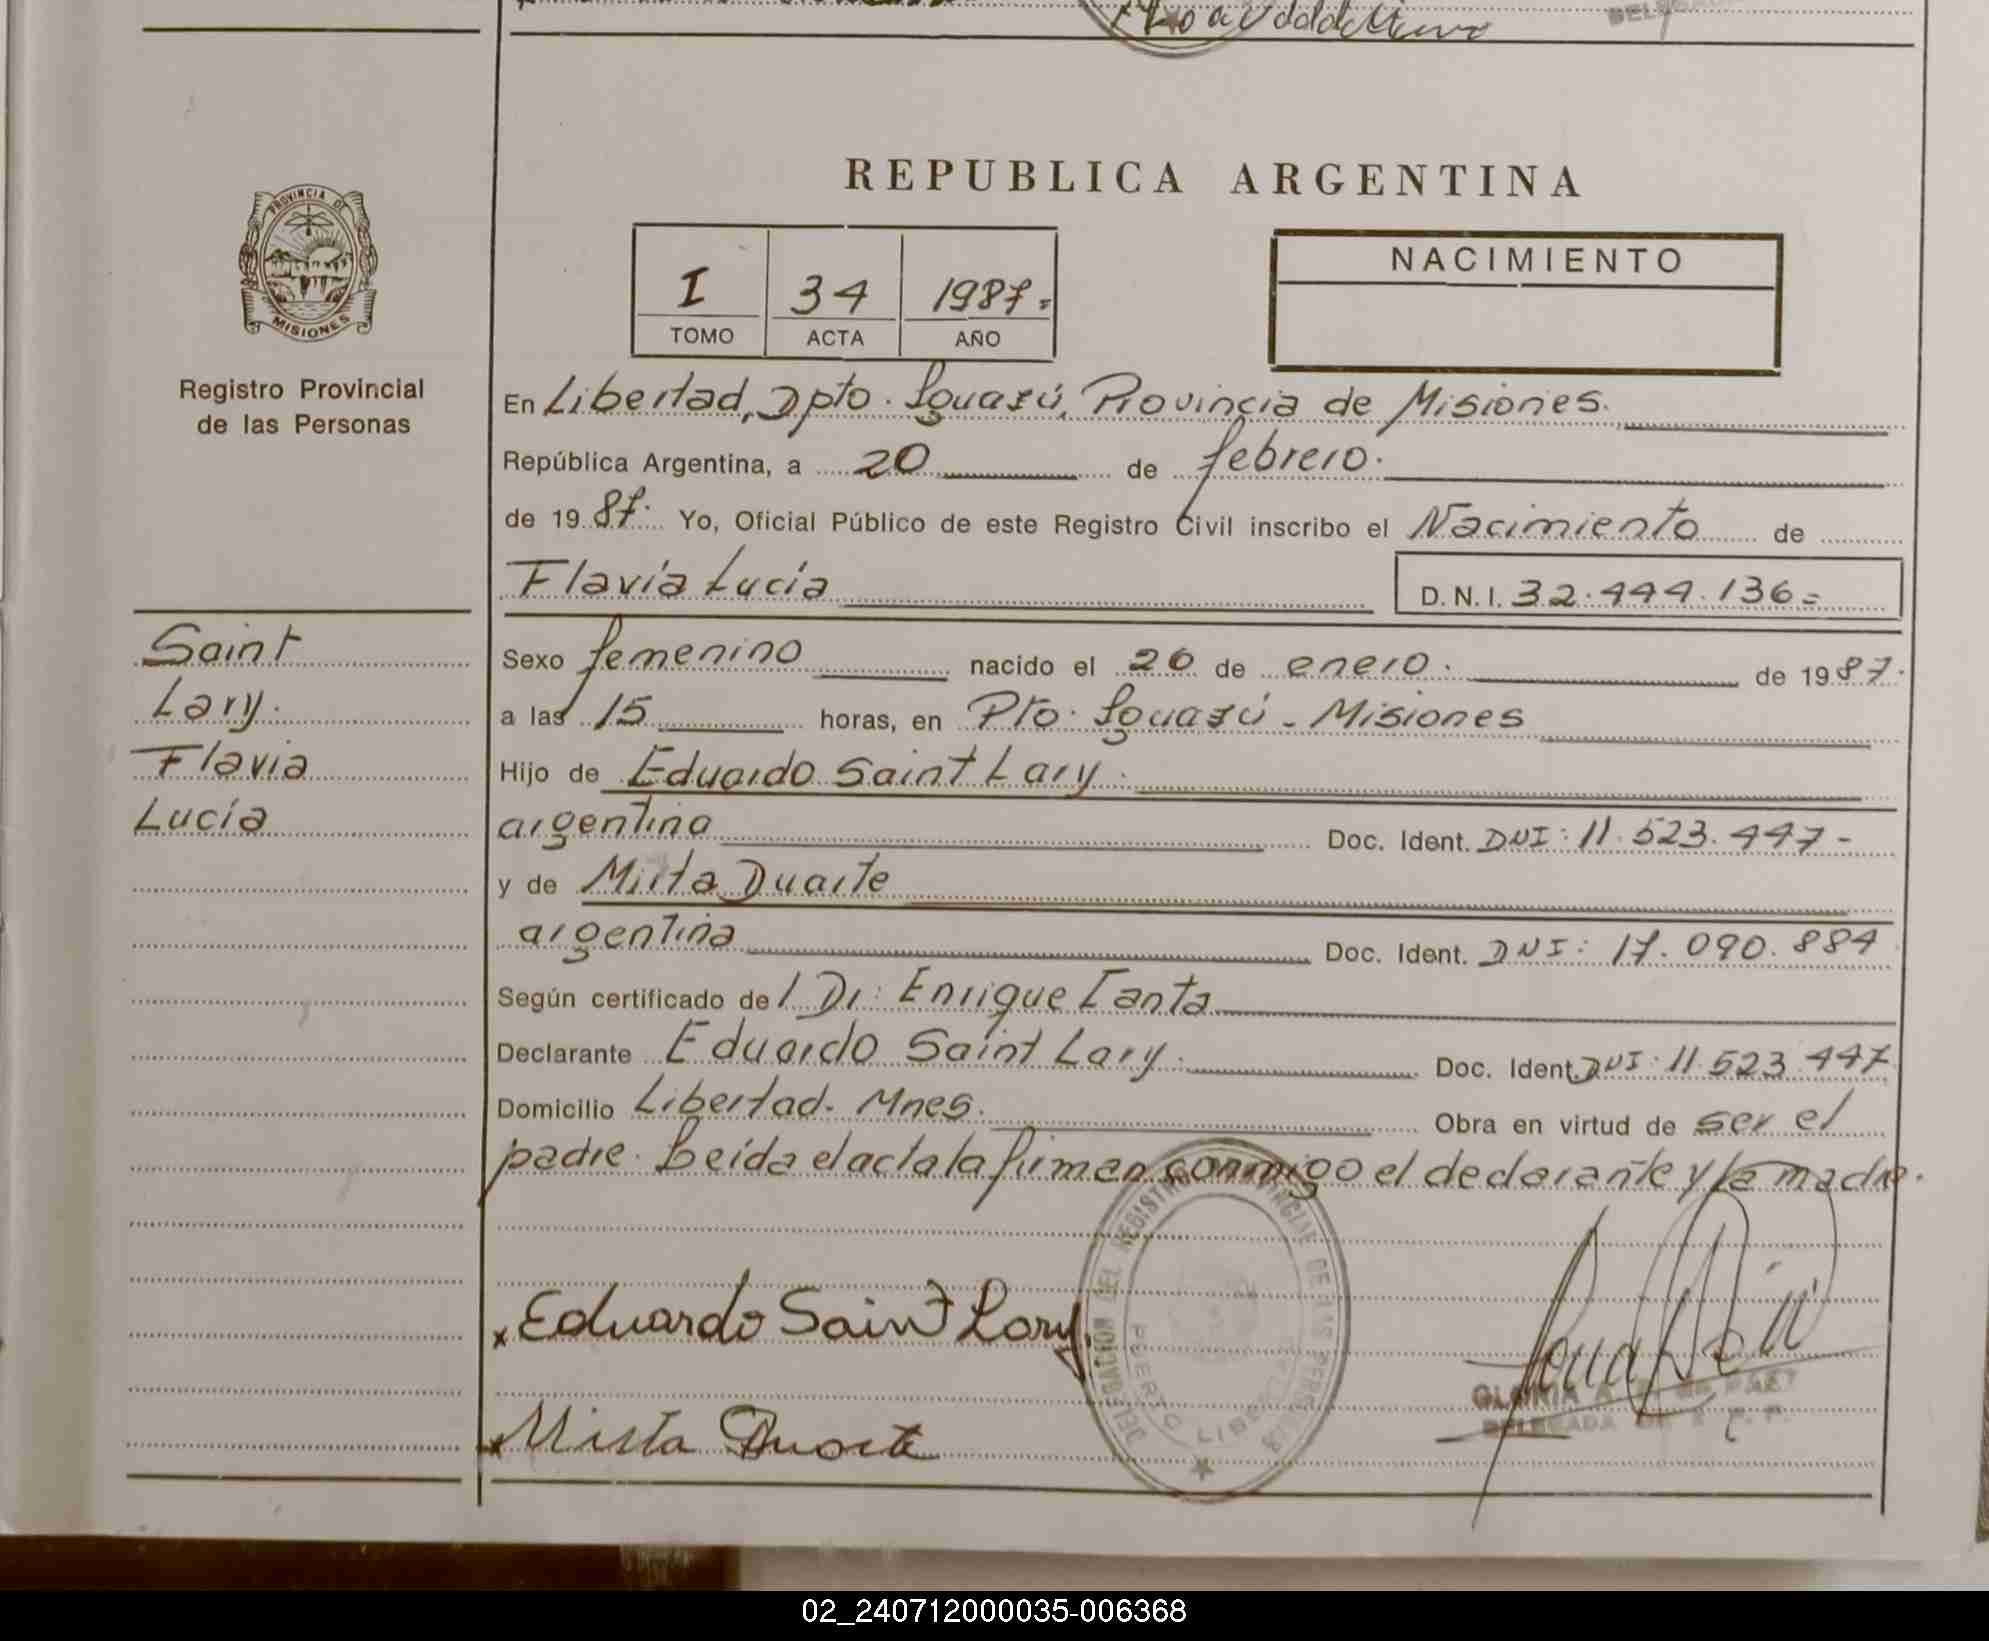 REPUBLICA ARGENTINA
PROVINCIA DE
MISIONES
Registro Provincial
de las Personas
I 34 1987.=
TOMO ACTA AÑO
NACIMIENTO
En Libertad, Dpto. Iguazú, Provincia de Misiones.
República Argentina, a 20 de febrero.
de 1987. Yo, Oficial Público de este Registro Civil inscribo el Nacimiento de
Flavia Lucía D.N.I. 32.444.136=
Saint
Lary.
Flavia
Lucía
Sexo femenino nacido el 20 de enero. de 1987.
a las 15 horas, en Pto. Iguazú - Misiones
Hijo de Eduardo Saint Lary.
argentino Doc. Ident. DNI: 11.523.447-
y de Mirta Duarte
argentina Doc. Ident. DNI: 17.090.884
Según certificado de l Dr: Enrique Tanta
Declarante Eduardo Saint Lary. Doc. Ident. DNI: 11.523.447
Domicilio Libertad. Mnes. Obra en virtud de ser el
padre. Leída el acta la firman conmigo el declarante y la madre.
x Eduardo Saint Lary.
x Mirta Duarte
DELEGACION DEL REGISTRO PROVINCIAL DE LAS PERSONAS
PUERTO LIBERTAD
GLORIA A. DE PAEZ
DELEGADA
02_240712000035-006368